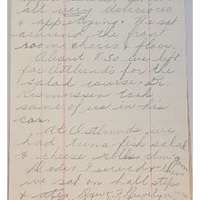 all very delicious
& appetizing. We sat
around the front
room chairs & floor.
About 8:30 we left
for Ostlunds for the
salad course. Dr.
took
some of us in his
car.
At Ostlunds we
had tuna fish salad
& cheese rolls
I served &
we sat on hall steps
& ate.